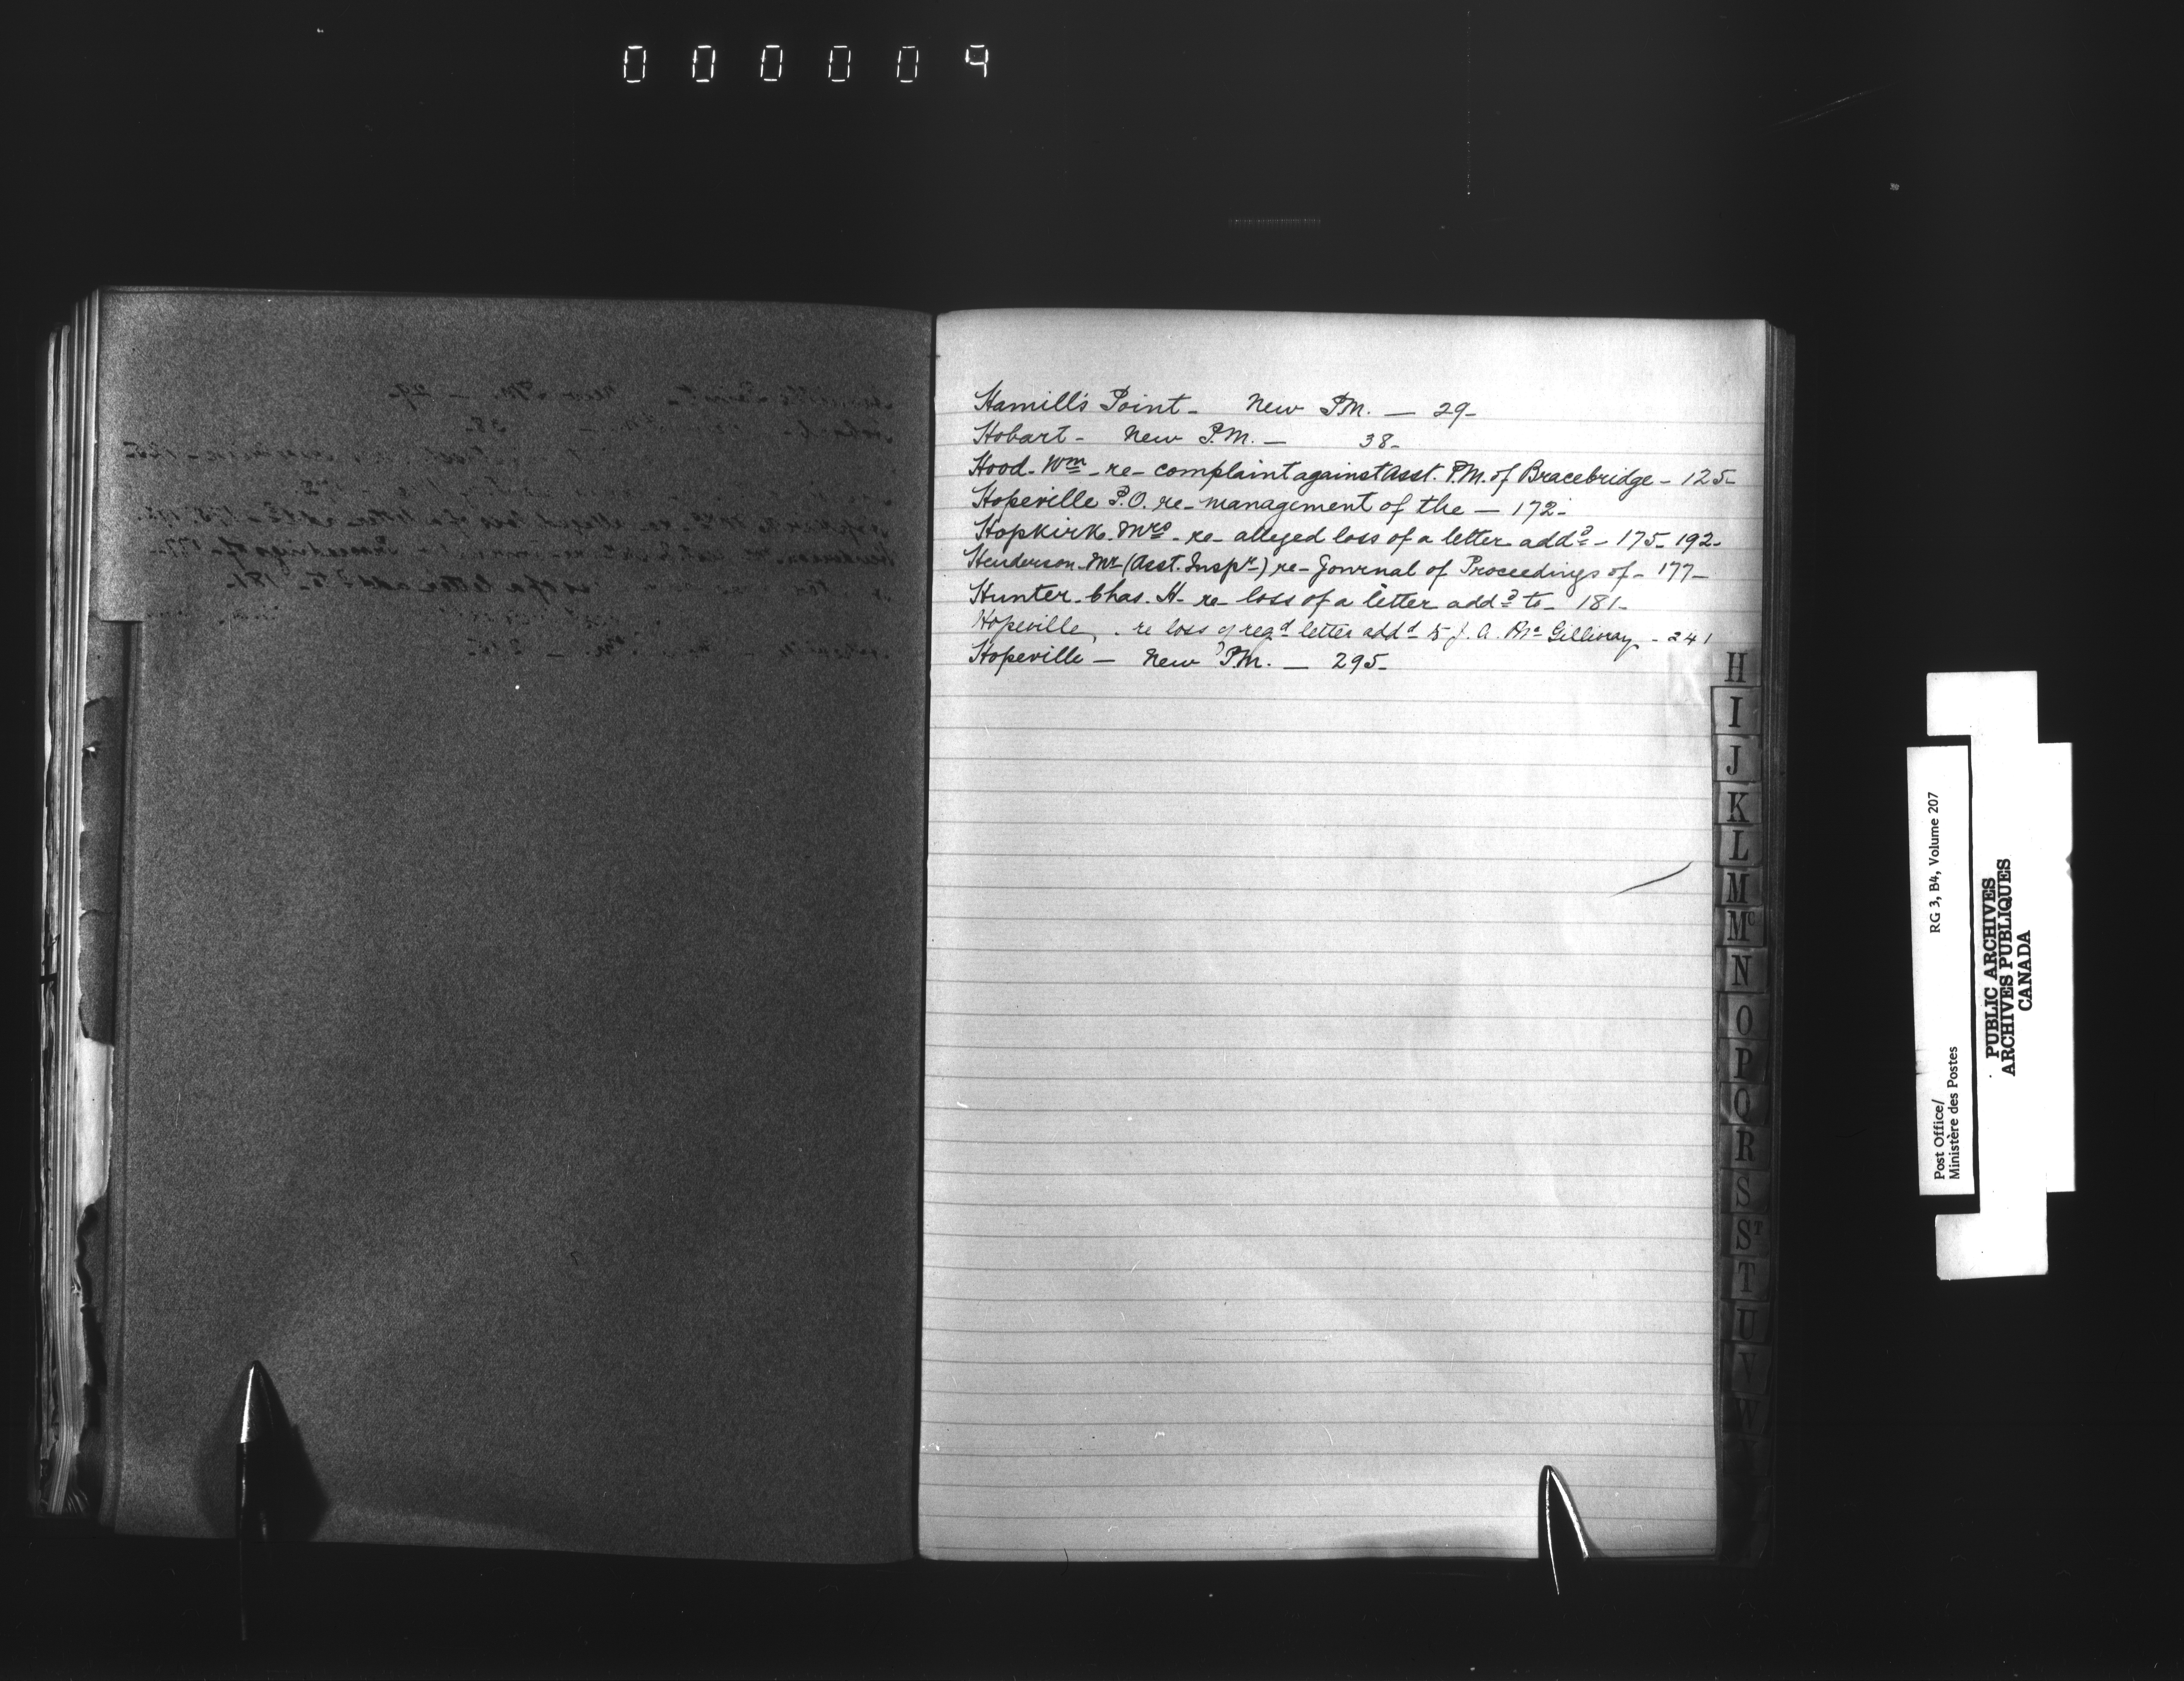 000009
Hamill's Point - New P.M. — 29 -
Hobart - New P.M. — 38 -
Hood - Wm - re - complaint against Asst. P.M. of Bracebridge - 125 -
Hopeville P.O. re - management of the — 172 -
Hopkirk - Mrs - re - alleged loss of a letter addd - 175 - 192 -
Henderson - Mr (Asst. Inspr -) re - Journal of Proceedings of - 177 -
Hunter - Chas. H - re - loss of a letter addd to - 181 -
Hopeville, . re loss of regd letter addd to J. A. McGillivray - 241
Hopeville — New P.M. — 295 -
H
I
J
K
L
M
Mc
N
O
P
Q
R
S
ST
T
U
V
W
Post Office/ RG 3, B4, Volume 207
Ministère des Postes
PUBLIC ARCHIVES
ARCHIVES PUBLIQUES
CANADA